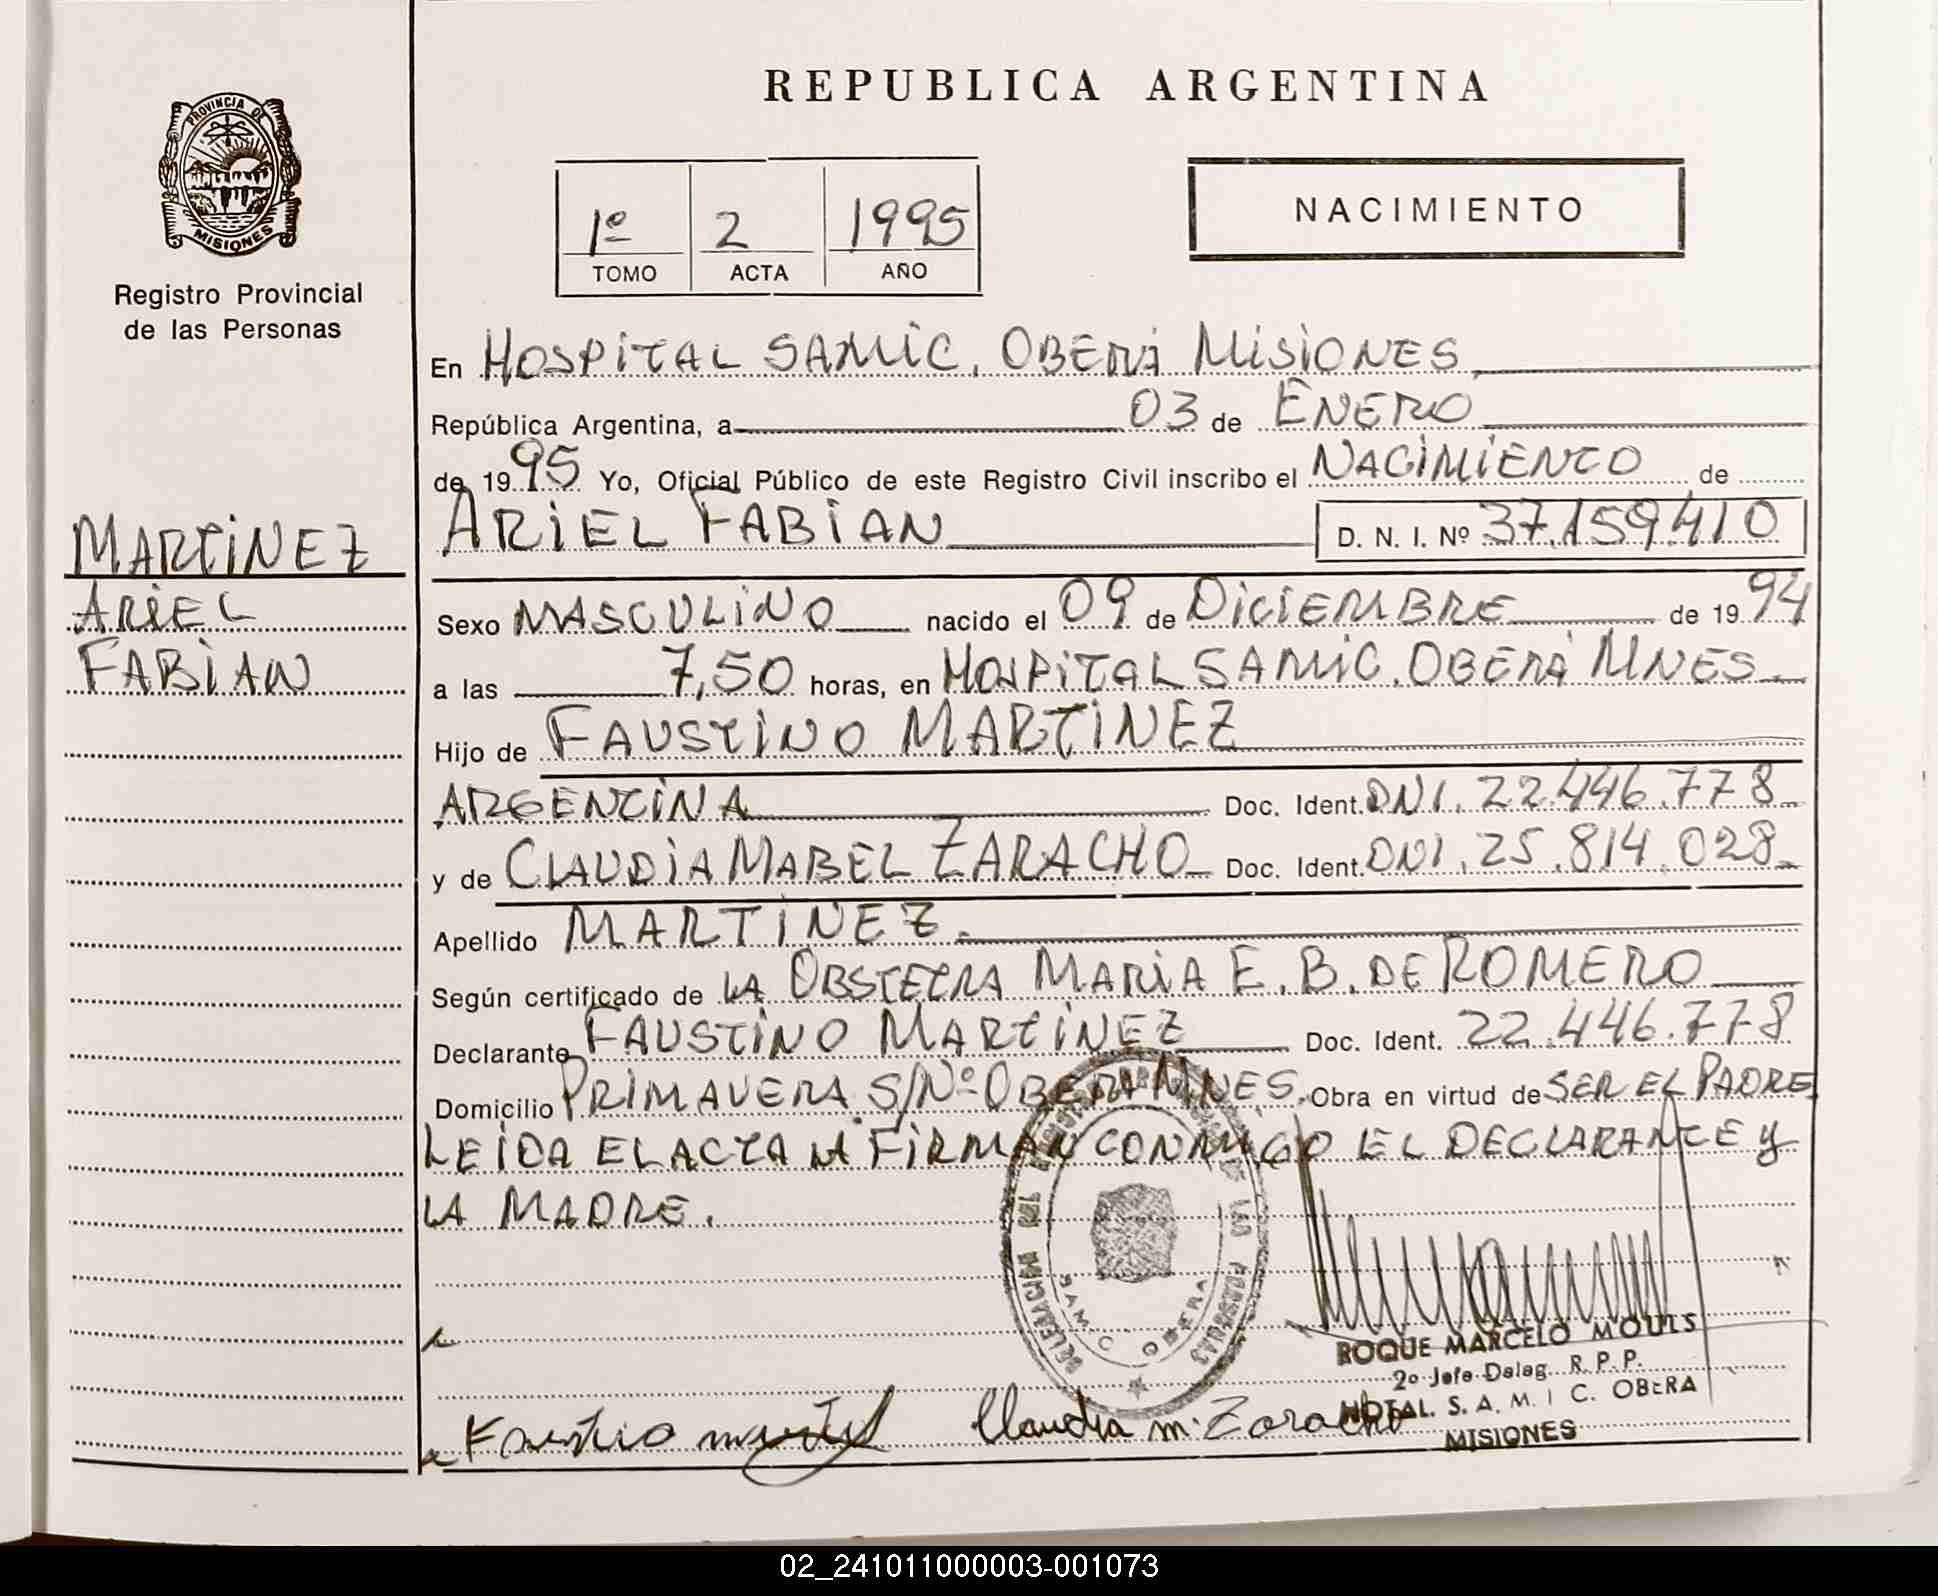 REPUBLICA ARGENTINA
PROVINCIA DE
MISIONES
Registro Provincial
de las Personas
1º 2 1995
TOMO ACTA AÑO
NACIMIENTO
MARTINEZ
ARIEL
FABIAN
En HOSPITAL SAMIC. OBERÁ MISIONES
República Argentina, a 03 de ENERO
de 1995 Yo, Oficial Público de este Registro Civil inscribo el NACIMIENTO de
ARIEL FABIAN D. N. I. Nº 37.159.410
Sexo MASCULINO nacido el 09 de DICIEMBRE de 1994
a las 7,50 horas, en HOSPITAL SAMIC. OBERÁ MNES.
Hijo de FAUSTINO MARTINEZ
ARGENTINA Doc. Ident. DNI. 22.446.778
y de CLAUDIA MABEL ZARACHO Doc. Ident. DNI. 25.814.028
Apellido MARTINEZ.
Según certificado de LA OBSTETRA MARIA E. B. DE ROMERO
Declarante FAUSTINO MARTINEZ Doc. Ident. 22.446.778
Domicilio PRIMAVERA S/Nº OBERA MNES. Obra en virtud de SER EL PADRE
LEIDA EL ACTA LA FIRMAN CONMIGO EL DECLARANTE Y
LA MADRE.
DELEGACION DEL DE LAS PERSONAS
SAMIC OBERA
ROQUE MARCELO MOULS
2º Jefe Deleg. R. P. P.
HOTAL. S. A. M. I C. OBERA
MISIONES
Claudia M. Zaracho
02_241011000003-001073